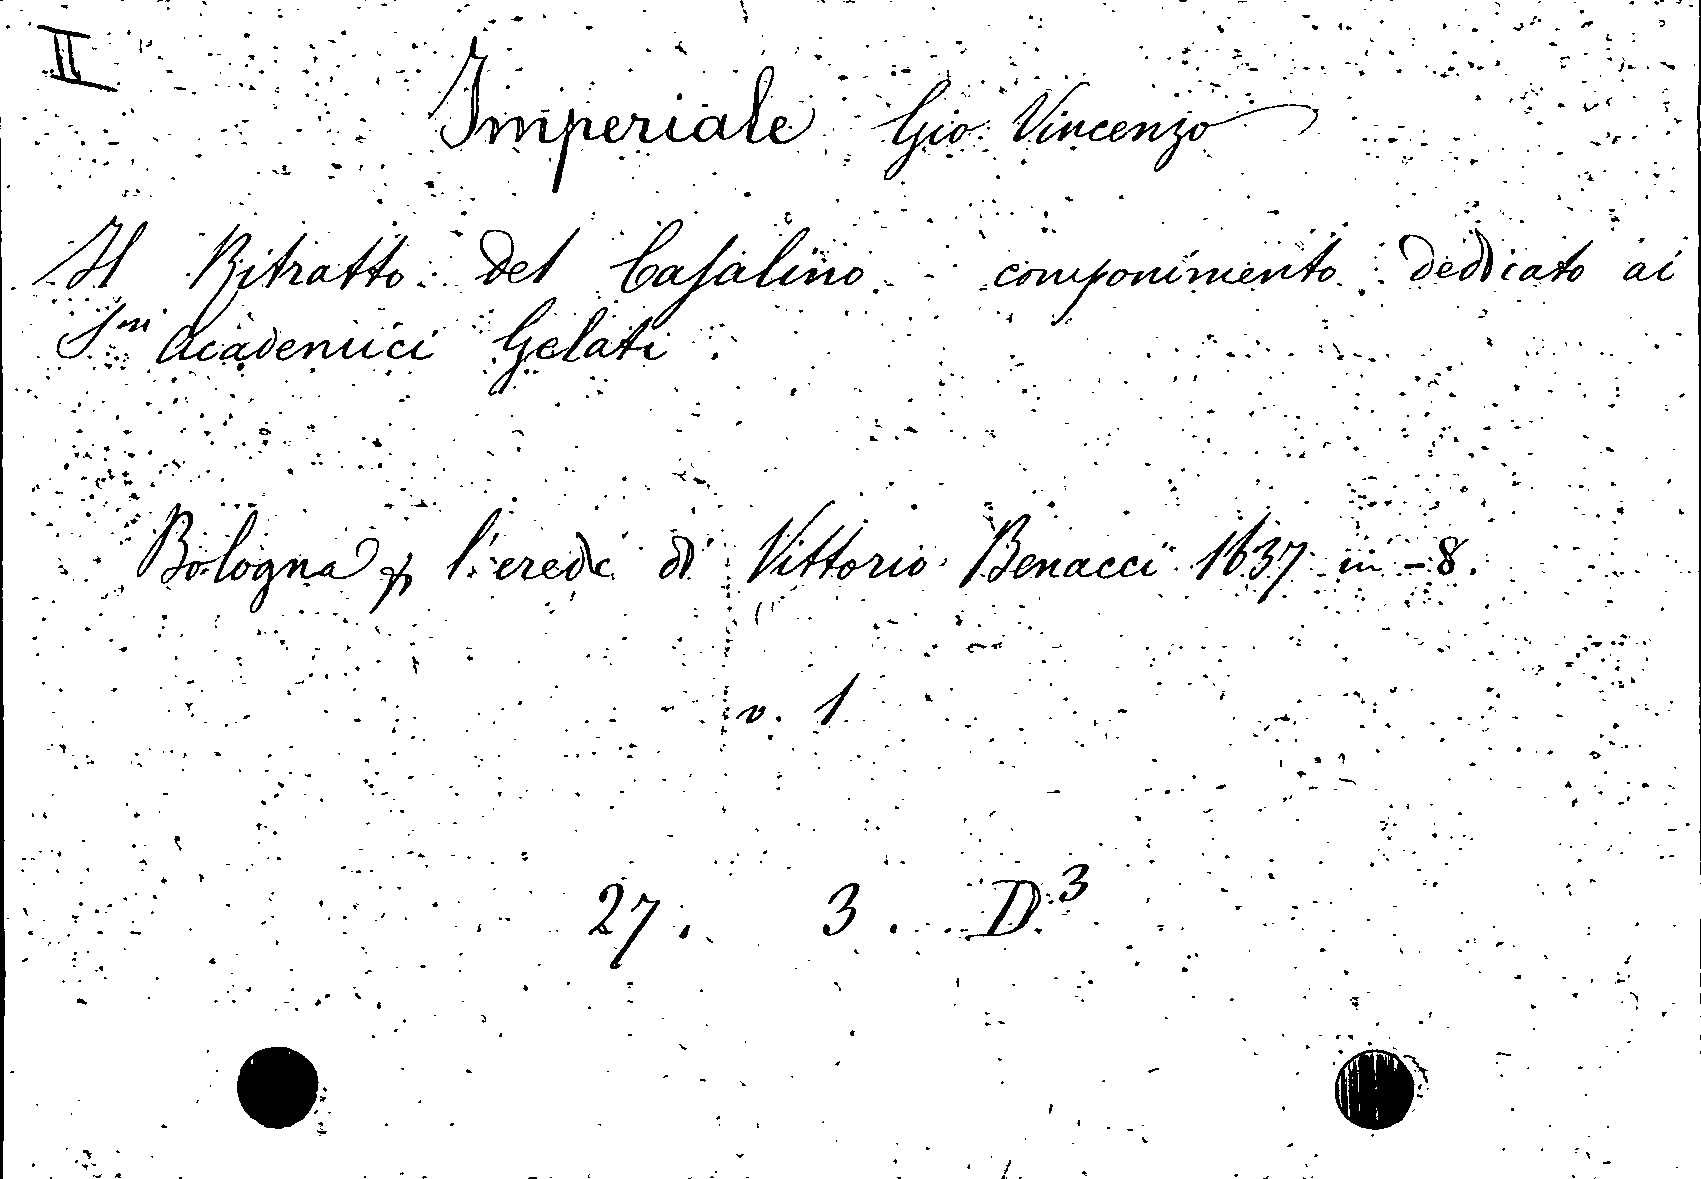 II
Imperiale Gio Vincenzo
Il Ritratto del Casalino componimento dedicato ai
Sni Academici Gelati
Bologna p l'erede di Vittorio Benacci 1637 in-8.
v. 1
27. 3. D.3